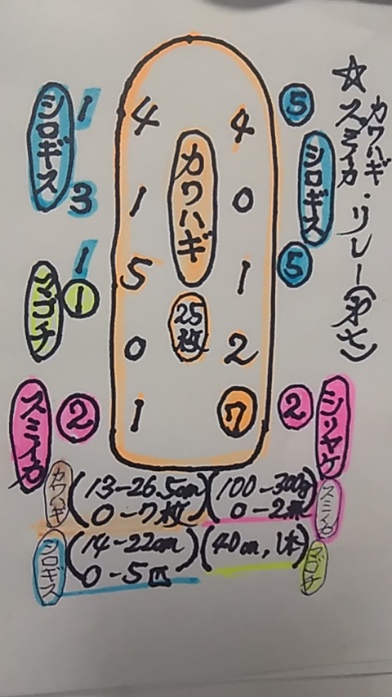 ☆カワハギ
スミイカ・リレー(第七)
シロギス
1
3
1
マゴチ
①
スミイカ
②
4
1
5
0
1
カワハギ
25枚
4
0
1
2
⑦
⑤
シロギス
⑤
②
シリヤケ
カワハギ (13-26.5cm) (100-300g) スミイカ
0-7枚 0-2杯
シロギス (14-22cm) (40cm, 1本) マゴチ
0-5匹